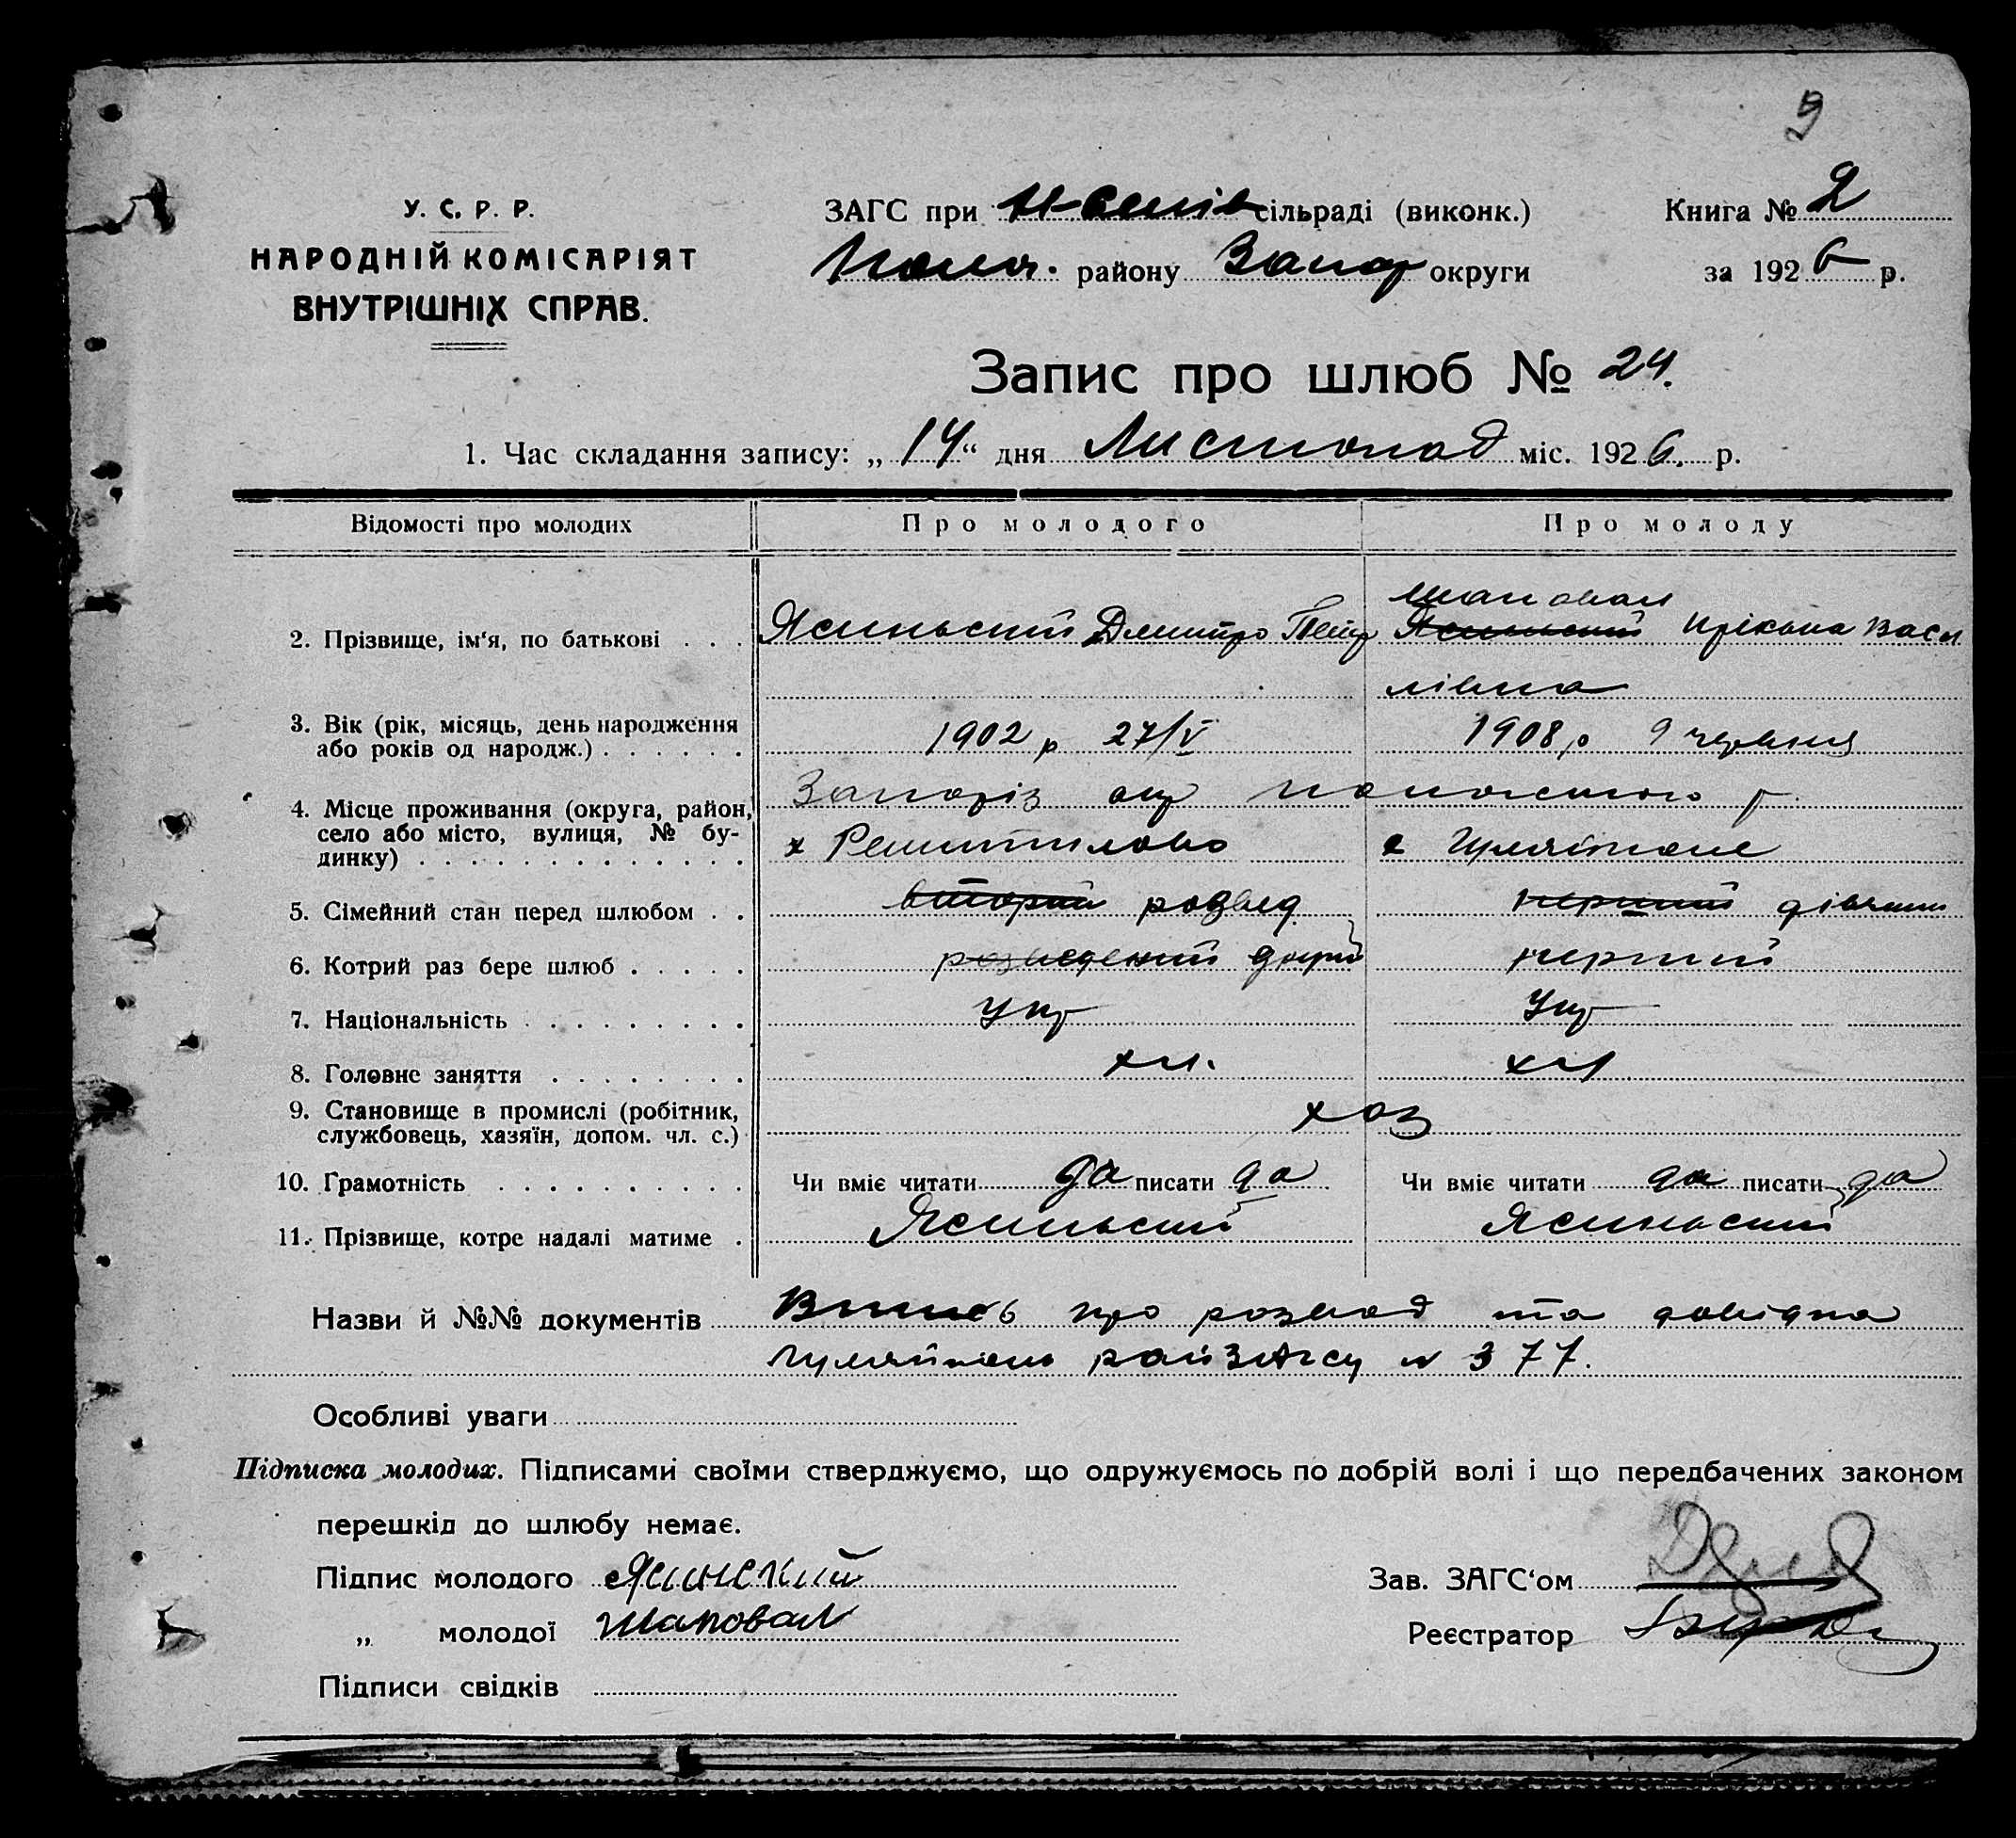 9
У. С. Р. Р.
НАРОДНІЙ КОМІСАРІЯТ
ВНУТРІШНІХ СПРАВ.
ЗАГС при сільраді (виконк.)
району Запор округи
Книга № 2
за 1926 р.
Запис про шлюб № 24.
1. Час складання запису: „14“ дня Листопад міс. 1926. р.
Відомості про молодих
Про молодого
Про молоду
2. Прізвище, ім'я, по батькові . . . Ясиньский Дмитро Петр
Шаповал
Ясиньский Васи
лівна
3. Вік (рік, місяць, день народження
або років од народж.) . . . . . . 1902 р 27/V 1908 р 9 червня
4. Місце проживання (округа, район,
село або місто, вулиця, № бу-
динку) . . . . . . . . . . . . . .
Запоріз окр р.
х с Гуляйполе
5. Сімейний стан перед шлюбом . . вторий розвед. перший дівчина
6. Котрий раз бере шлюб . . . . . розведений другий перший
7. Національність . . . . . . . . . Укр Укр
8. Головне заняття . . . . . . . . хл. хл
9. Становище в промислі (робітник,
службовець, хазяїн, допом. чл. с.) хоз
10. Грамотність . . . . . . . . . . Чи вміє читати да писати да Чи вміє читати да писати да
11. Прізвище, котре надалі матиме . Ясиньский Ясинський
Назви й №№ документів Випись про розвод та довідка
Гуляйпель райЗАГСу № 377.
Особливі уваги
Підписка молодих. Підписами своїми стверджуємо, що одружуємось по добрій волі і що передбачених законом
перешкід до шлюбу немає.
Підпис молодого Ясинский
Зав. ЗАГС'ом
„ молодої Шаповал
Реєстратор
Підписи свідків